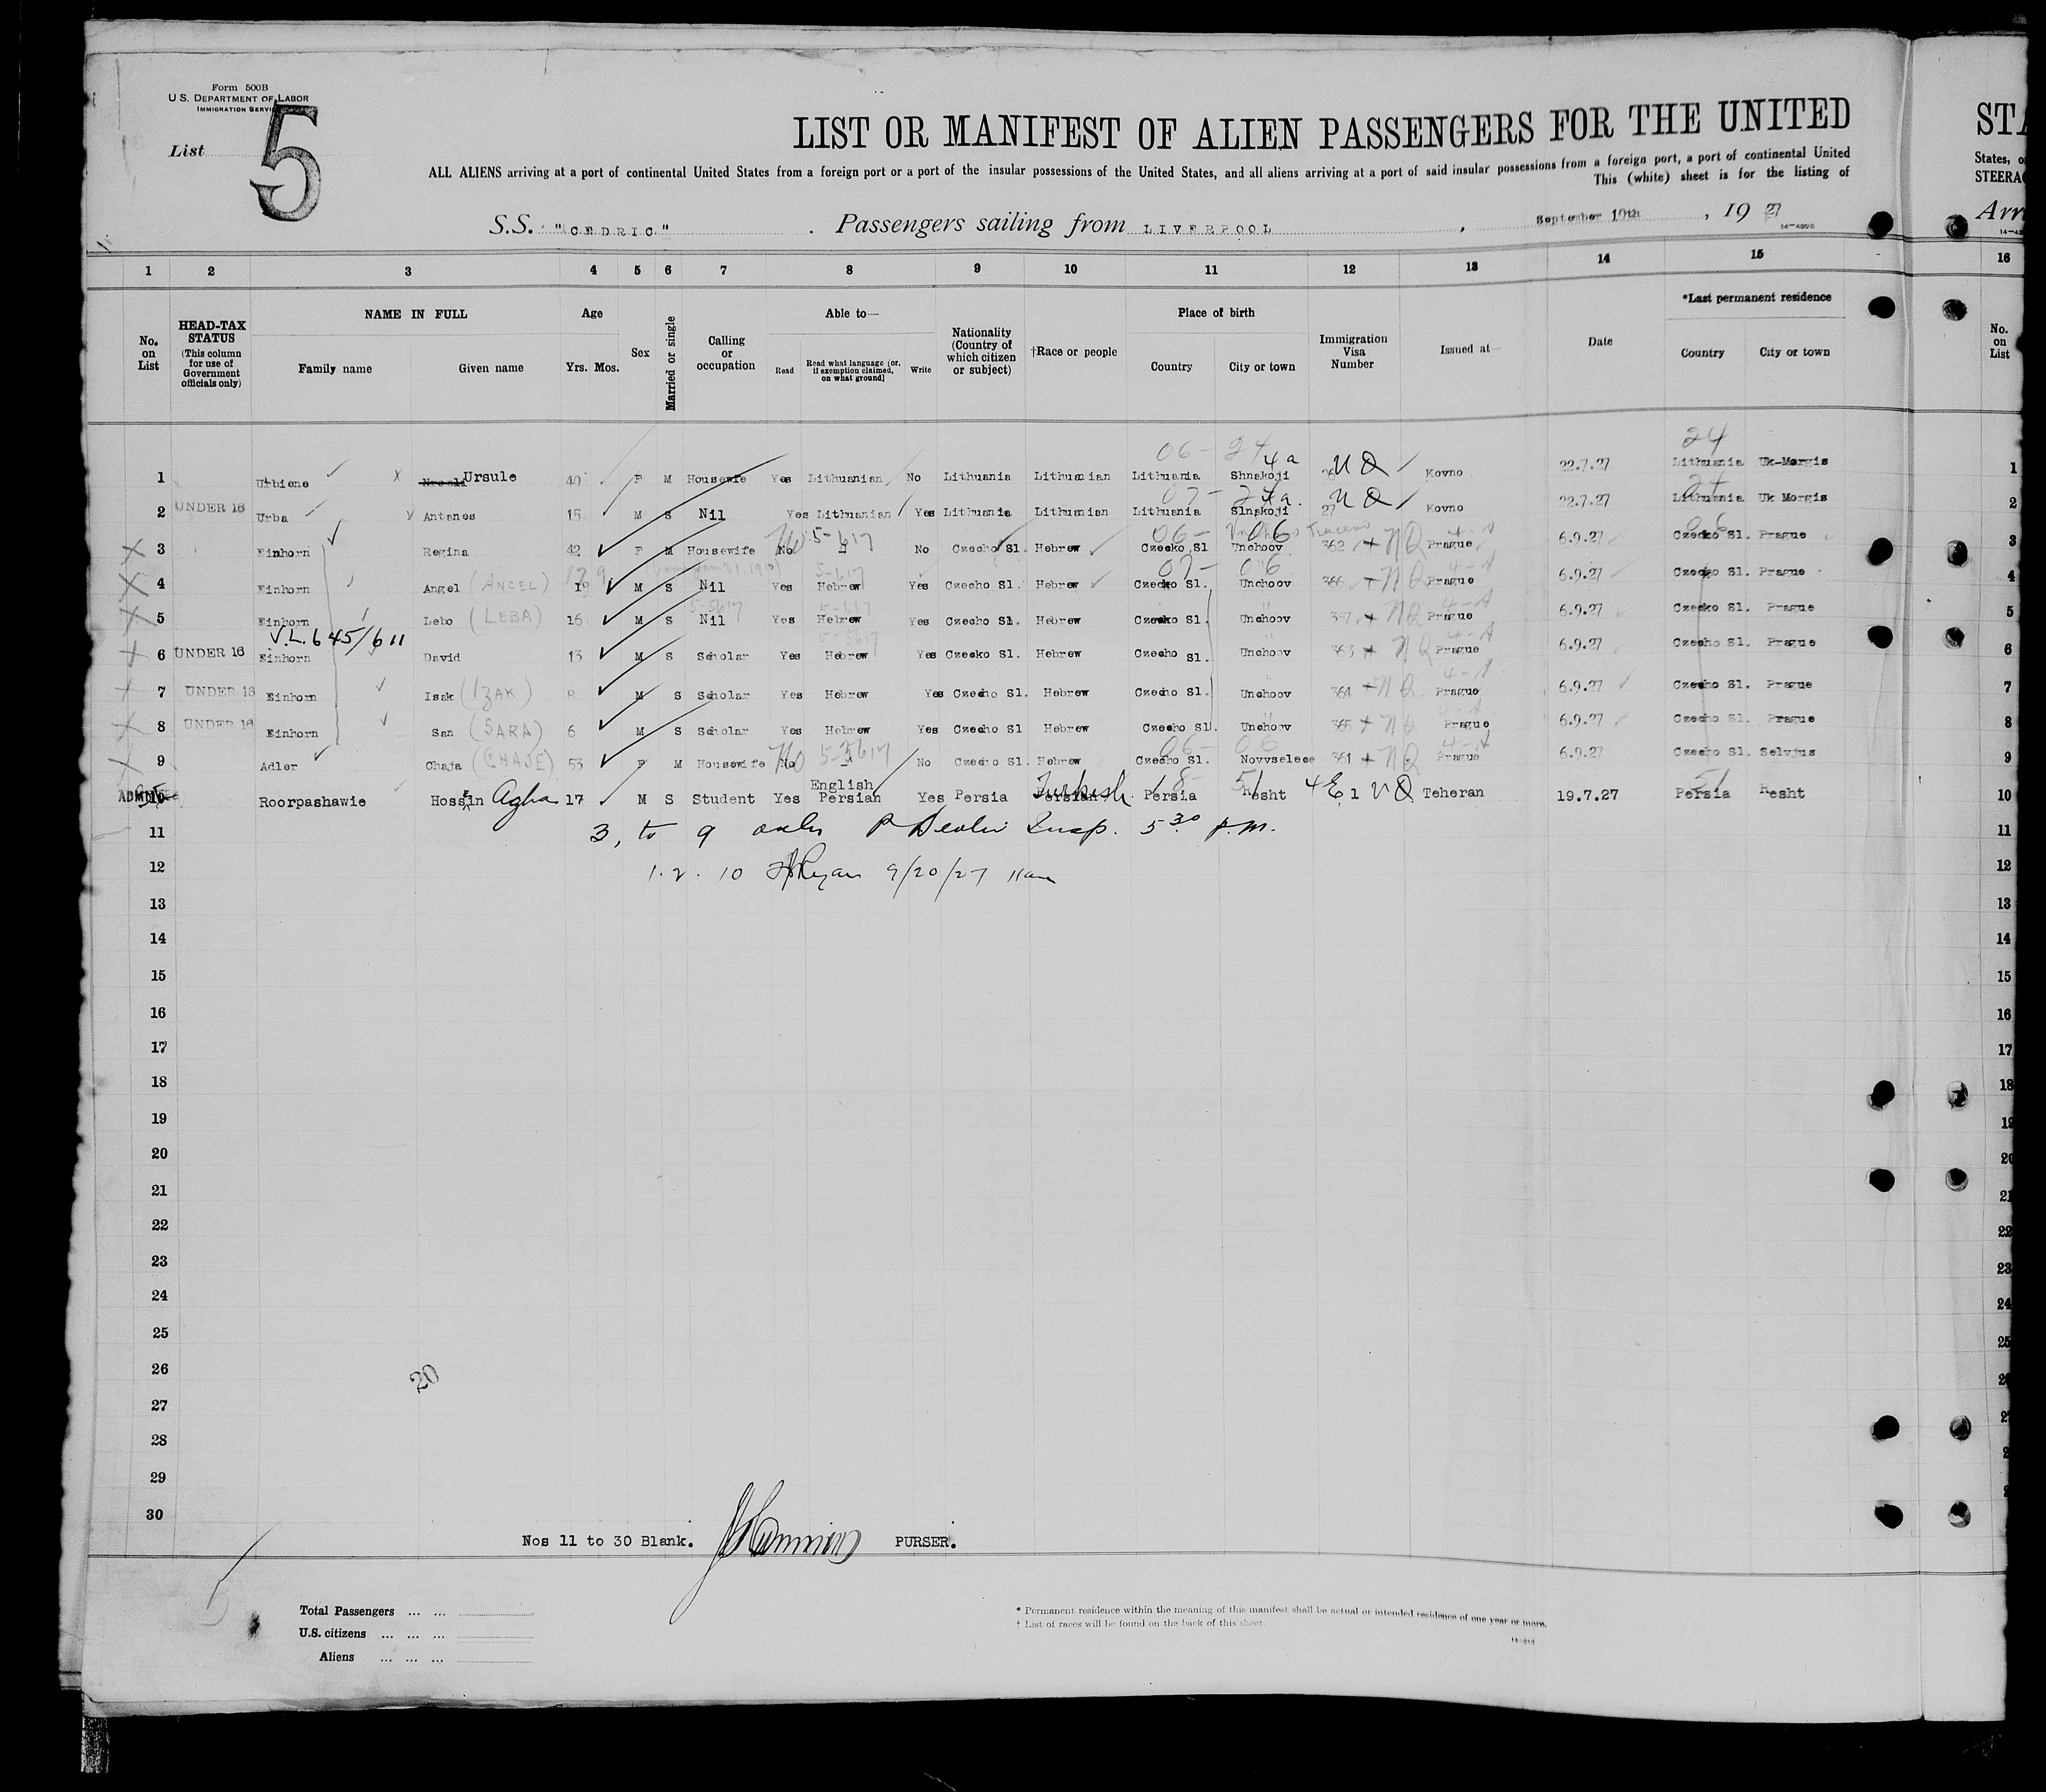 Form 500B
U.S. DEPARTMENT OF LABOR
IMMIGRATION SERVICE
List 5
LIST OR MANIFEST OF ALIEN PASSENGERS FOR THE UNITED
STA
ALL ALIENS arriving at a port of continental United States from a foreign port or a port of the insular possessions of the United States, and all aliens arriving at a port of said insular possessions from a foreign port, a port of continental United
States, o
This (white) sheet is for the listing of
STEERA
S.S. "CEDRIC". Passengers sailing from LIVERPOOL, September 10th, 1927
Arri
1 2 3 4 5 6 7 8 9 10 11 12 13 14 15 16
No. on List
HEAD-TAX STATUS (This column for use of Government officials only)
NAME IN FULL
Family name Given name
Age
Yrs. Mos.
Sex
Married or single
Calling or occupation
Able to—
Read
Read what language (or, if exemption claimed, on what ground)
Write
Nationality (Country of which citizen or subject)
†Race or people
Place of birth
Country City or town
Immigration Visa Number
Issued at—
Date
*Last permanent residence
Country City or town
No. on List
06- 24 24
1 Urbiene Ursule 40 F M Housewife Yes Lithuanian No Lithuania Lithuanian Lithuania Shnakoji NQ Kovno 22.7.27 Lithuania Uk-Mergis 1
07- 24
2 UNDER 16 Urba Antanes 15 M S Nil Yes Lithuanian Yes Lithuania Lithuanian Lithuania Slnakoji 27 NQ Kovno 22.7.27 Lithuania Uk Morgis 2
5-617 06- 06 4-A
3 Einhorn Regina 42 F M Housewife No No Czecho Sl. Hebrew Czecko Sl Unchoov 362 + NQ Prague 6.9.27 Czecko Sl. Prague 3
5-617 07- 06 4-A
4 Einhorn Angel (ANCEL) M S Nil Yes Hebrew Yes Czecho Sl. Hebrew Czecko Sl. Unchoov 366 + NQ Prague 6.9.27 Czecko Sl. Prague 4
5-5617 5-617 4-A
5 Einhorn Lebo (LEBA) 16 M S Nil Yes Hebrew Yes Czecho Sl. Hebrew Czecko Sl. Unchoov + NQ Prague 6.9.27 Czecko Sl. Prague 5
V.L. 645/611 5-5617 4-A
6 UNDER 16 Einhorn David 13 M S Scholar Yes Hebrew Yes Czecko Sl. Hebrew Czecho Sl. Unchoov 363 + NQ Prague 6.9.27 Czecho Sl. Prague 6
4-A
7 UNDER 16 Einhorn Isak (IZAK) 8 M S Scholar Yes Hebrew Yes Czecho Sl. Hebrew Czecho Sl. Unchoov 364 + NQ Prague 6.9.27 Czecho Sl. Prague 7
4-A
8 UNDER 16 Einhorn San (SARA) 6 M S Scholar Yes Hebrew Yes Czecho Sl Hebrew Czecho Sl. Unchoov 365 + NQ Prague 6.9.27 Czecho Sl. Prague 8
06- 06 4-A
9 Adler Chaja (CHAJE) 53 F M Housewife No No Czecho Sl. Hebrew Czecho Sl. Novvselece 361 + NQ Prague 6.9.27 Czecho Sl. Selvjus 9
English Turkish 18- 51 51
10 Roorpashawie Hossin Agha 17 M S Student Yes Persian Yes Persia Persian Persia Resht 4E1 NQ Teheran 19.7.27 Persia Resht 10
11 3, to 9 Insp. 5 30 P.M. 11
12 1. 2. 10 Ryan 9/20/27 11am 12
13 13
14 14
15 15
16 16
17 17
18 18
19 19
20 20
21 21
22 22
23 23
24 24
25 25
26
20
27
28
29
30
Nos 11 to 30 Blank. PURSER.
5
Total Passengers ... ...
U.S. citizens ... ... ...
Aliens ... ... ...
* Permanent residence within the meaning of this manifest shall be actual or intended residence of one year or more.
† List of races will be found on the back of this sheet.